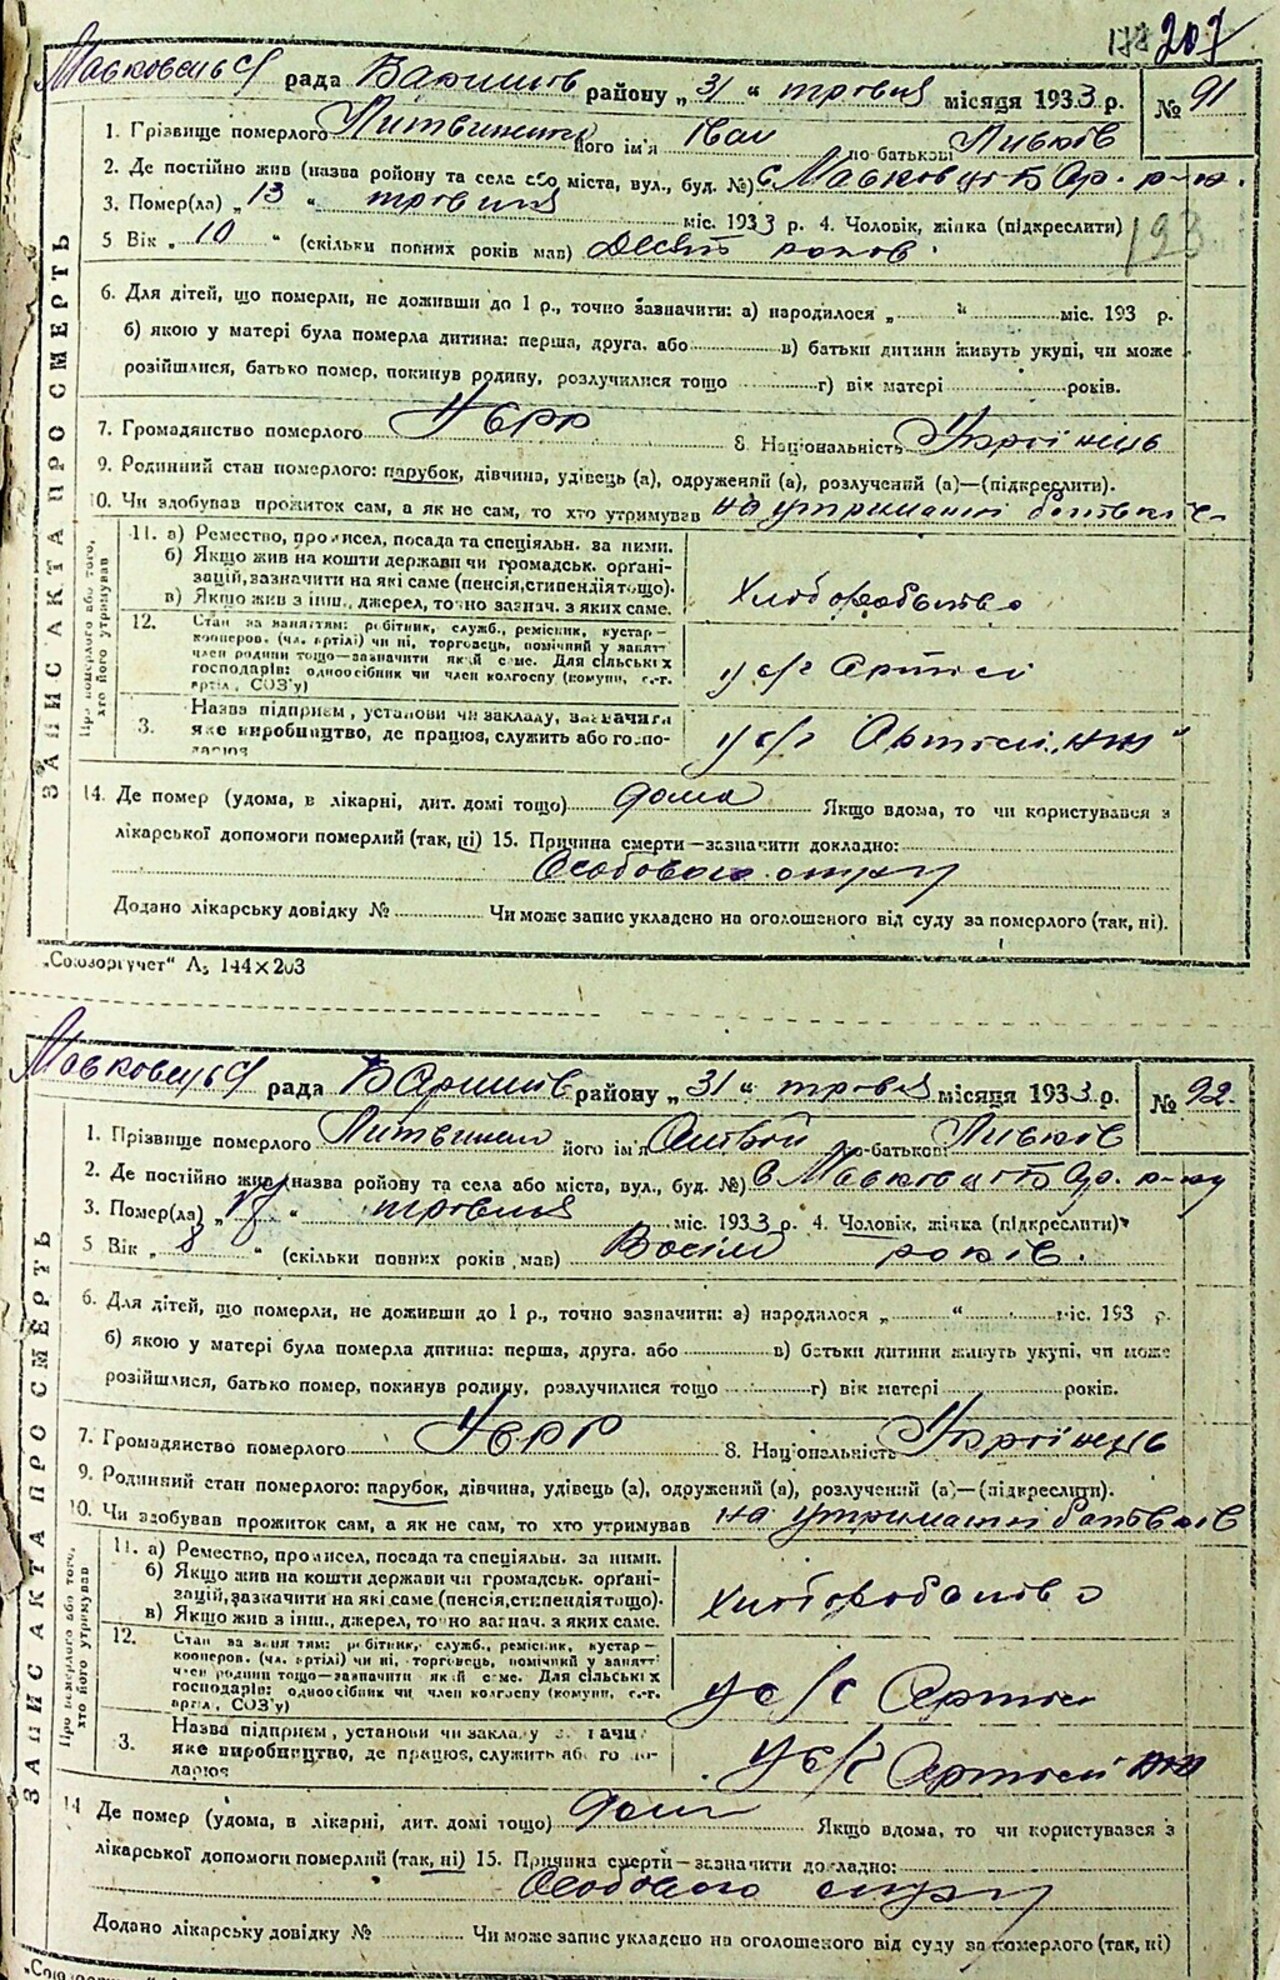 207
рада Баришів району „31“ травня місяця 1933 р. № 91
1. Прізвище померлого Литвиненко його ім'я Іван по-батькові
2. Де постійно жив (назва ройону та села або міста, вул., буд. №) с. Мавковці Бар. р-н.
3. Помер(ла) „13“ травня міс. 1933 р. 4. Чоловік, жінка (підкреслити)
193
5 Вік „10“ (скільки повних років мав) Десять років
6. Для дітей, що померли, не доживши до 1 р., точно зазначити: а) народилося „ “ міс. 193 р.
б) якою у матері була померла дитина: перша, друга, або в) батьки дитини живуть укупі, чи може
розійшлися, батько помер, покинув родину, розлучилися тощо г) вік матері років.
7. Громадянство померлого УСРР 8. Національність Українець
9. Родинний стан померлого: парубок, дівчина, удівець (а), одружений (а), розлучений (а)—(підкреслити).
10. Чи здобував прожиток сам, а як не сам, то хто утримував на утриманні батьків
ЗАПИС АКТА ПРО СМЕРТЬ
Про померлого або того, хто його утримував
11. а) Ремество, промисел, посада та спеціяльн. за ними.
б) Якщо жив на кошти держави чи громадськ. орґані-
зацій, зазначити на які саме (пенсія, стипендія тощо).
в) Якщо жив з інш., джерел, точно зазнач. з яких саме.
Хліборобство
12. Стан за заняттям: робітник, служб., ремісник, кустар—
кооперов. (чл. артілі) чи ні, торговець, помічний у занятті
член родини тощо—зазначити який саме. Для сільських
господарів: одноосібник чи член колгоспу (комуни, с.-г.
артіл., СОЗ'у)
у с/г Артілі
3. Назва підприєм, установи чи закладу, зазначити
яке виробництво, де працює, служить або госпо-
дарює
у с/г Артілі
14. Де помер (удома, в лікарні, дит. домі тощо) дома Якщо вдома, то чи користувався з
лікарської допомоги померлий (так, ні) 15. Причина смерти—зазначити докладно:
Особового
Додано лікарську довідку № Чи може запис укладено на оголошеного від суду за померлого (так, ні).
„Союзоргучет“ А5 144×203
рада Баришів району „31“ травня місяця 1933 р. № 92.
1. Прізвище померлого його ім'я по-батькові
2. Де постійно жив (назва ройону та села або міста, вул., буд. №) с Мавковці Бар. р-ну
3. Помер(ла) „18“ травня міс. 1933 р. 4. Чоловік, жінка (підкреслити)
5 Вік „8“ (скільки повних років мав) Восім років.
6. Для дітей, що померли, не доживши до 1 р., точно зазначити: а) народилося „ “ міс. 193 р.
б) якою у матері була померла дитина: перша, друга, або в) батьки дитини живуть укупі, чи може
розійшлися, батько помер, покинув родину, розлучилися тощо г) вік матері років.
7. Громадянство померлого УСРР 8. Національність Українець
9. Родинний стан померлого: парубок, дівчина, удівець (а), одружений (а), розлучений (а)—(підкреслити).
10. Чи здобував прожиток сам, а як не сам, то хто утримував на утриманні батьків
ЗАПИС АКТА ПРО СМЕРТЬ
Про померлого або того, хто його утримував
11. а) Ремество, промисел, посада та спеціяльн. за ними.
б) Якщо жив на кошти держави чи громадськ. орґані-
зацій, зазначити на які саме (пенсія, стипендія тощо).
в) Якщо жив з інш., джерел, точно зазнач. з яких саме.
Хліборобство
12. Стан за заняттям: робітник, служб., ремісник, кустар—
кооперов. (чл. артілі) чи ні, торговець, помічний у занятті
член родини тощо—зазначити який саме. Для сільських
господарів: одноосібник чи член колгоспу (комуни, с.-г.
артіл., СОЗ'у)
у с/г Артілі
3. Назва підприєм, установи чи закладу зазначити
яке виробництво, де працює, служить або госпо-
дарює
у с/г Артілі
14 Де помер (удома, в лікарні, дит. домі тощо) дома Якщо вдома, то чи користувався з
лікарської допомоги померлий (так, ні) 15. Причина смерти—зазначити докладно:
Особового
Додано лікарську довідку № Чи може запис укладено на оголошеного від суду за померлого (так, ні)